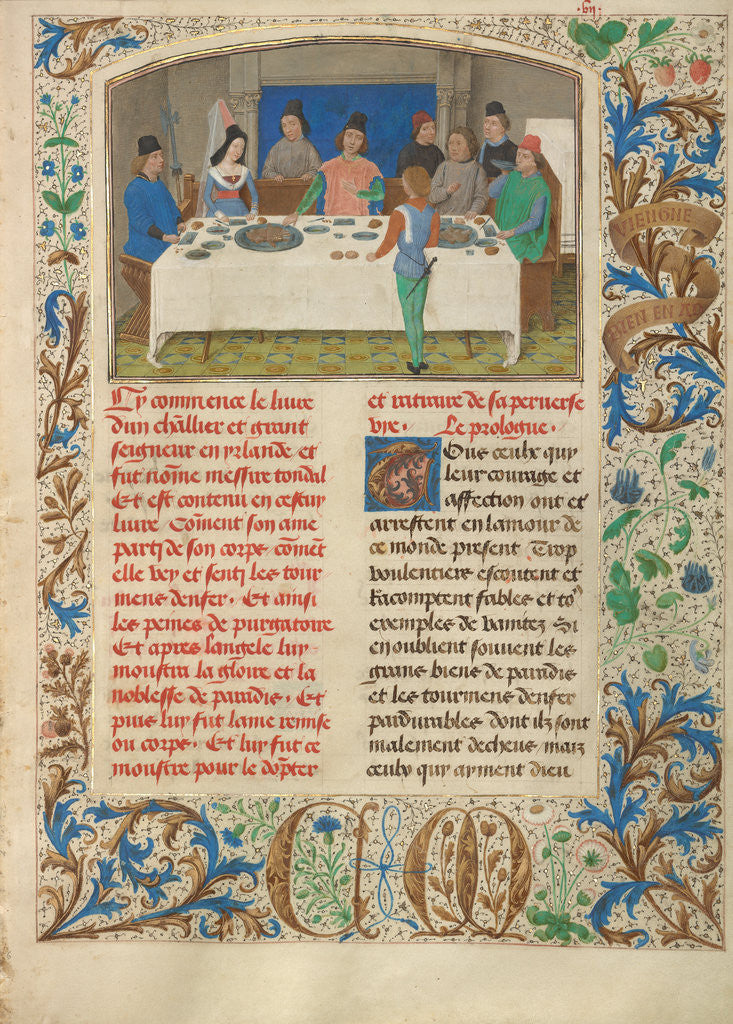 vii:
VIENGNE
BIEN EN AD
Cy commence le liure
dun chlãlier et grant
seigneur en yrlande et
fut nõme messire tondal
Et est contenu en cestuy
liure Cõment son ame
parti de son corps cõmẽt
elle vey et senti les tour
mens denfer. Et ainsi
les peines de purgatoire
Et apres langele luy
monstra la gloire et la
noblesse de paradis. Et
puis luy fut lame remise
ou corps. Et luy fut ce
monstre pour le dõpter
et retraire de sa peruerse
vye. Le prologue.
Tous ceulx quy
leur courage et
affection ont et
arrestent en lamour de
ce monde present Trop
voulentiers escoutent et
Racomptent fables et to9
exemples de vanitez Si
en oublient souuent les
grans biens de paradis
et les tourmens denfer
pardurables dont ilz sont
malement decheus mais
ceulx quy ayment dieu
C M